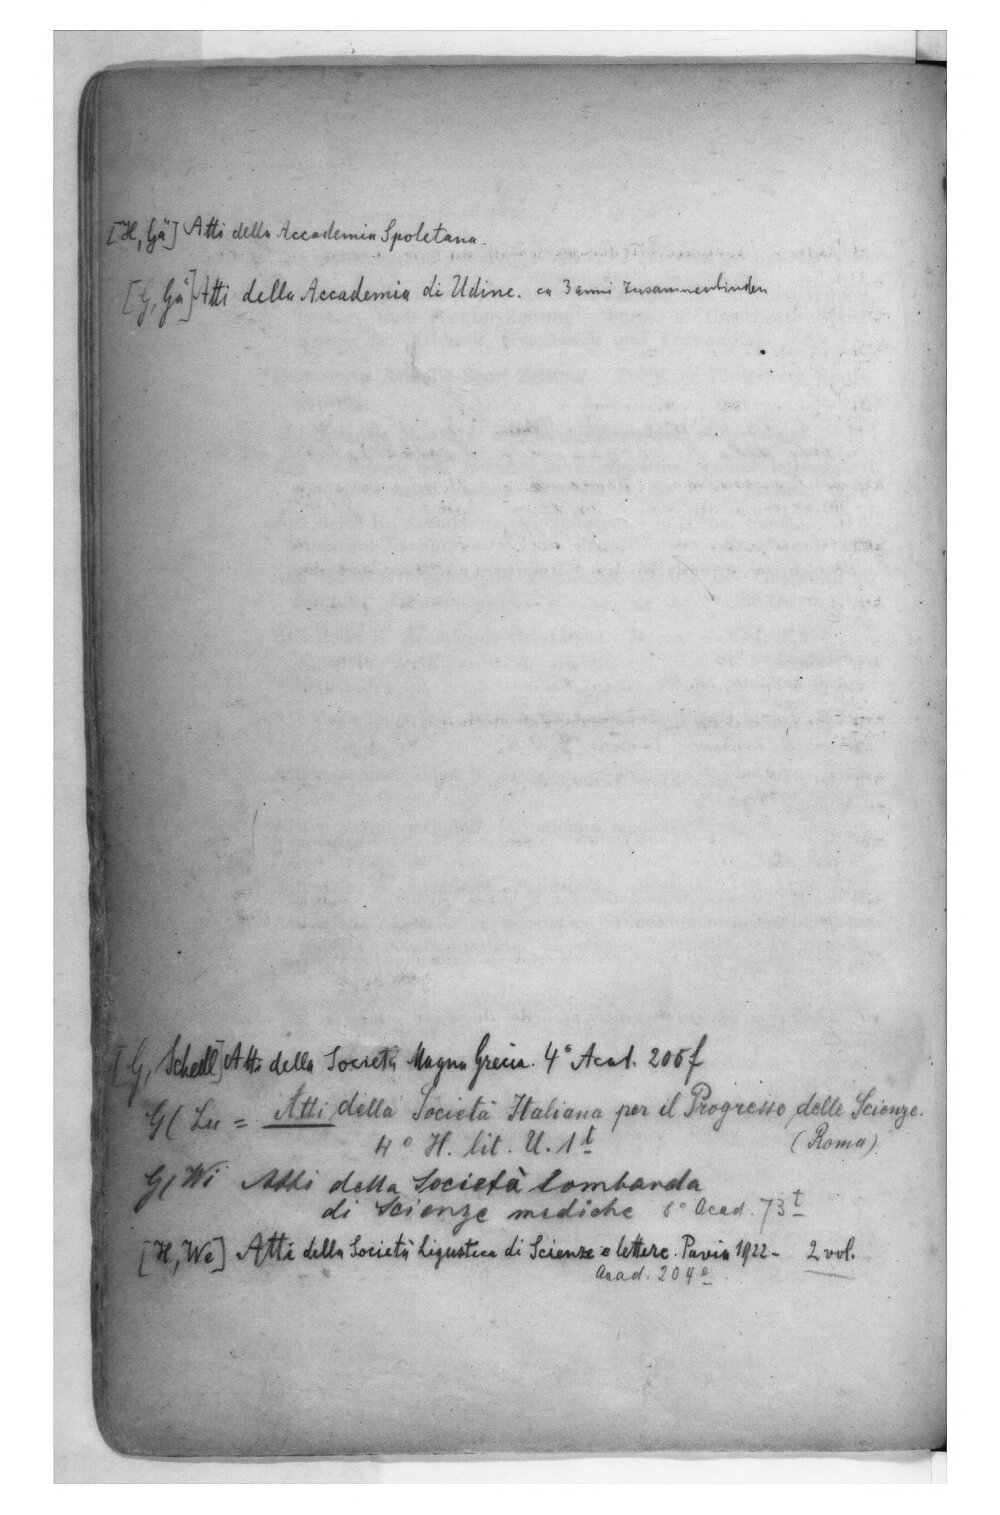 [H, Gä] Atti della Accademia Spoletana.
[G, Gä] Atti della Accademia di Udine. ca 3 anni zusammenbinden
[G, Schedl] Atti della Società Magna Grecia. 4° Acad. 206 f
G( Lu = Atti della Società Italiana per il Progresso delle Scienze.
4° H. lit. U. 1t (Roma)
G( Wi Atti della Società Lombarda
di Scienze mediche 8° Acad. 73t
[H, We] Atti della Società Ligustica di Scienze e lettere. Pavia 1922- 2 vol.
Acad. 204e